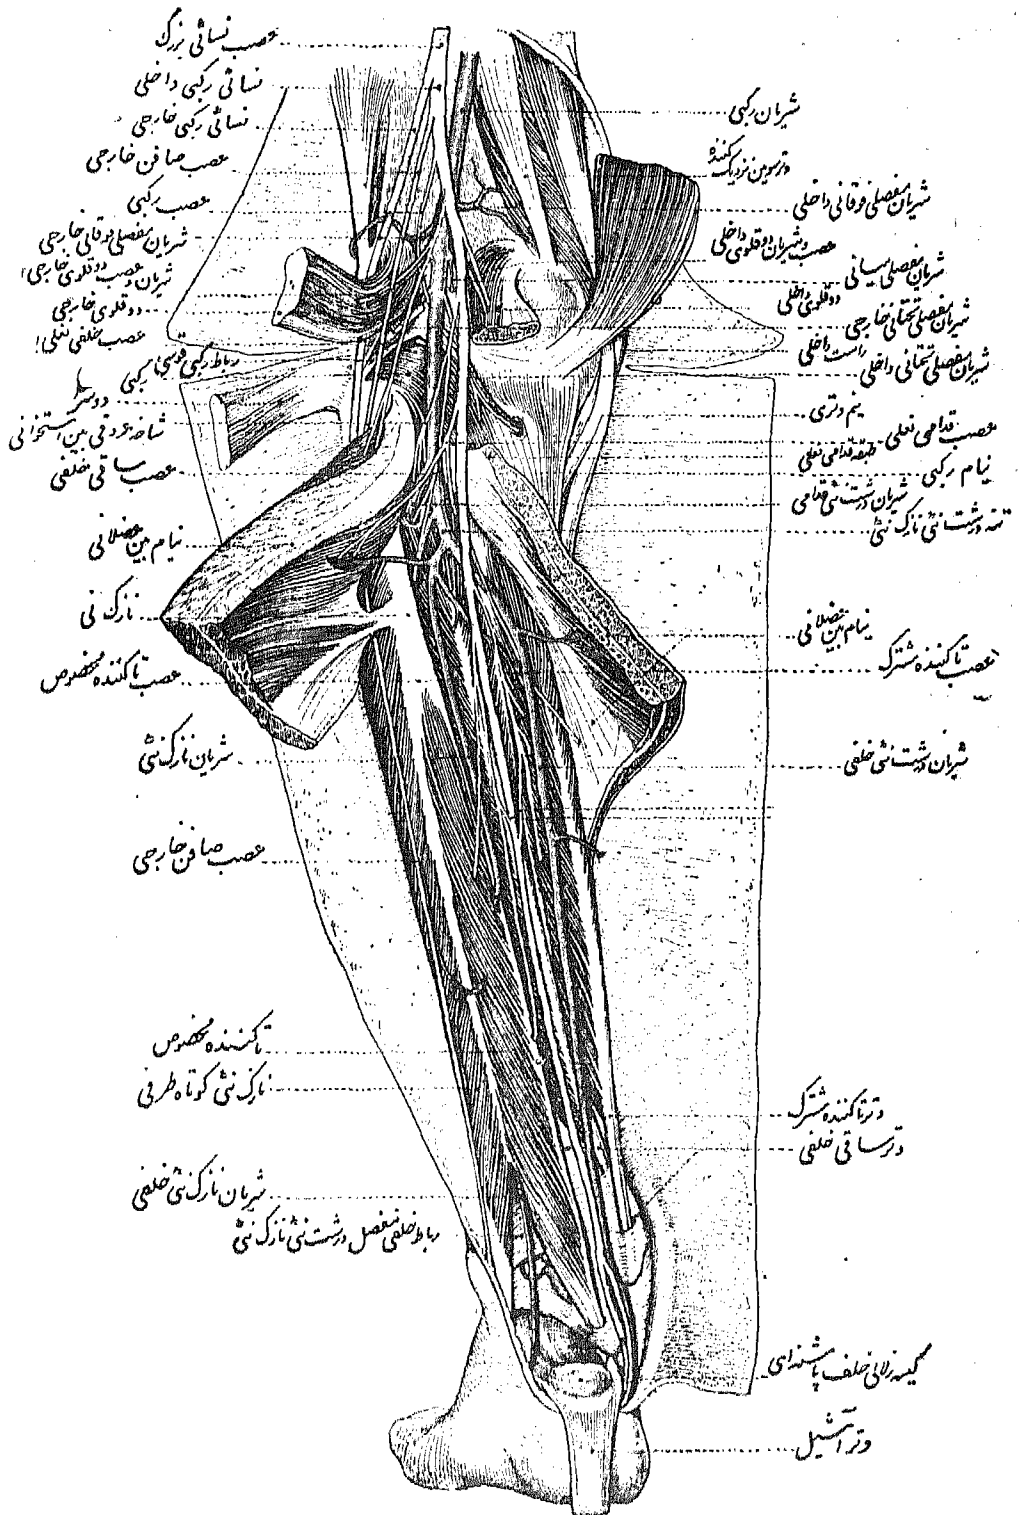 عصب نسائی بزرگ
نسائی رکبی داخلی
نسائی رکبی خارجی
عصب صافن خارجی
عصب رکبی
شریان مفصلی فوقانی خارجی
شریان و عصب دوقلوی خارجی
دوقلوی خارجی
عصب خلفی نعلی
رباط رکبی قوسی
رکبی
دوسر
شاخه عروقی بین استخوانی
عصب ساقی خلفی
نیام بین عضلانی
نازک نی
عصب تاکننده مخصوص
شریان نازک نئی
عصب صافن خارجی
تاکننده مخصوص
نازک نئی کوتاه طرفی
شریان نازک نئی خلفی
رباط خلفی مفصل درشت نئی نازک نئی
شریان رکبی
وتر سومین نزدیک کننده
شریان مفصلی فوقانی داخلی
عصب و شریان دوقلوی داخلی
شریان مفصلی میانی
دوقلوی داخلی
شریان مفصلی تحتانی خارجی
راست داخلی
شریان مفصلی تحتانی داخلی
نیم وتری
عصب قدامی نعلی
طبقه قدامی نعلی
نیام رکبی
شریان درشت نئی قدامی
تنه درشت نئی نازک نئی
نیام بین عضلانی
عصب تاکننده مشترک
شریان درشت نئی خلفی
وتر تاکننده مشترک
وتر ساقی خلفی
کیسه زلالی خلف پاشنه‌ای
وتر آشیل